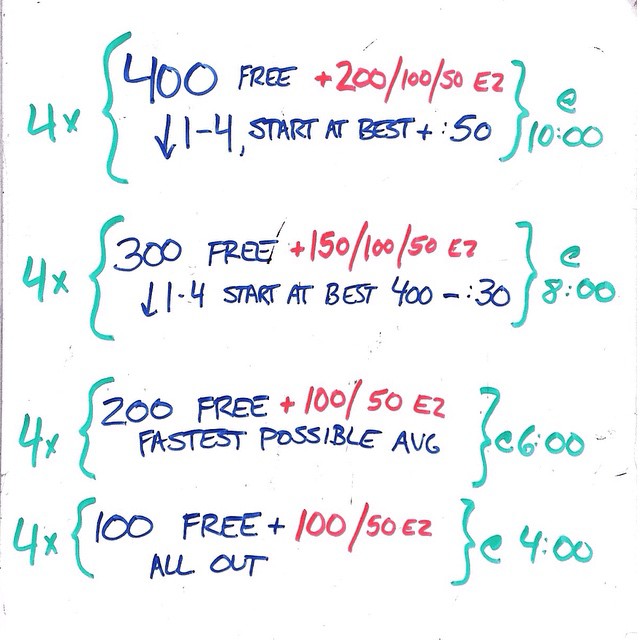 4x { 400 FREE +200/100/50 EZ } @ 10:00
↓1-4, START AT BEST + :50
4x { 300 FREE +150/100/50 EZ } @ 8:00
↓1-4 START AT BEST 400 - :30
4x { 200 FREE + 100/50 EZ } @ 6:00
FASTEST POSSIBLE AVG
4x { 100 FREE + 100/50 EZ } @ 4:00
ALL OUT